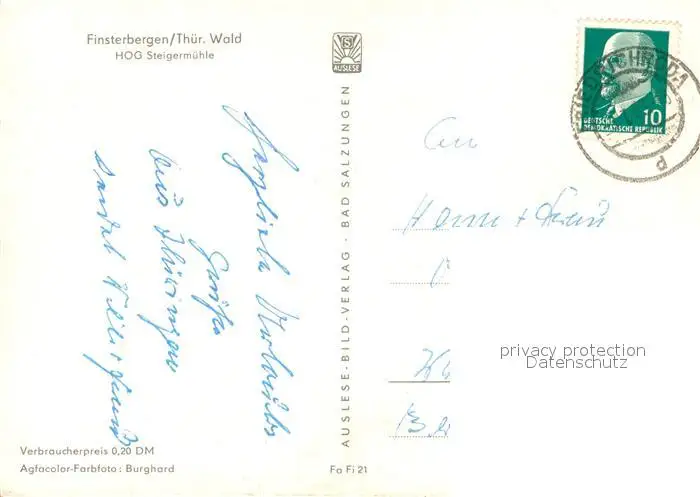 Finsterbergen/Thür. Wald
HOG Steigermühle
Herzliche Urlaubs
Grüße
aus Thüringen
sendet Familie
Verbraucherpreis 0,20 DM
Agfacolor-Farbfoto: Burghard
AUSLESE
AUSLESE-BILD-VERLAG · BAD SALZUNGEN
Fa Fi 21
10
DEUTSCHE
DEMOKRATISCHE REPUBLIK
d
An
Herrn + Frau
privacy protection
Datenschutz